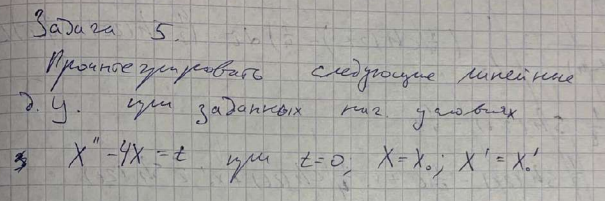 Задача 5.
Проинтегрировать следующие линейные
д. у. при заданных нач. условиях
X" - 4X = t при t=0, X = X₀; X' = X₀'